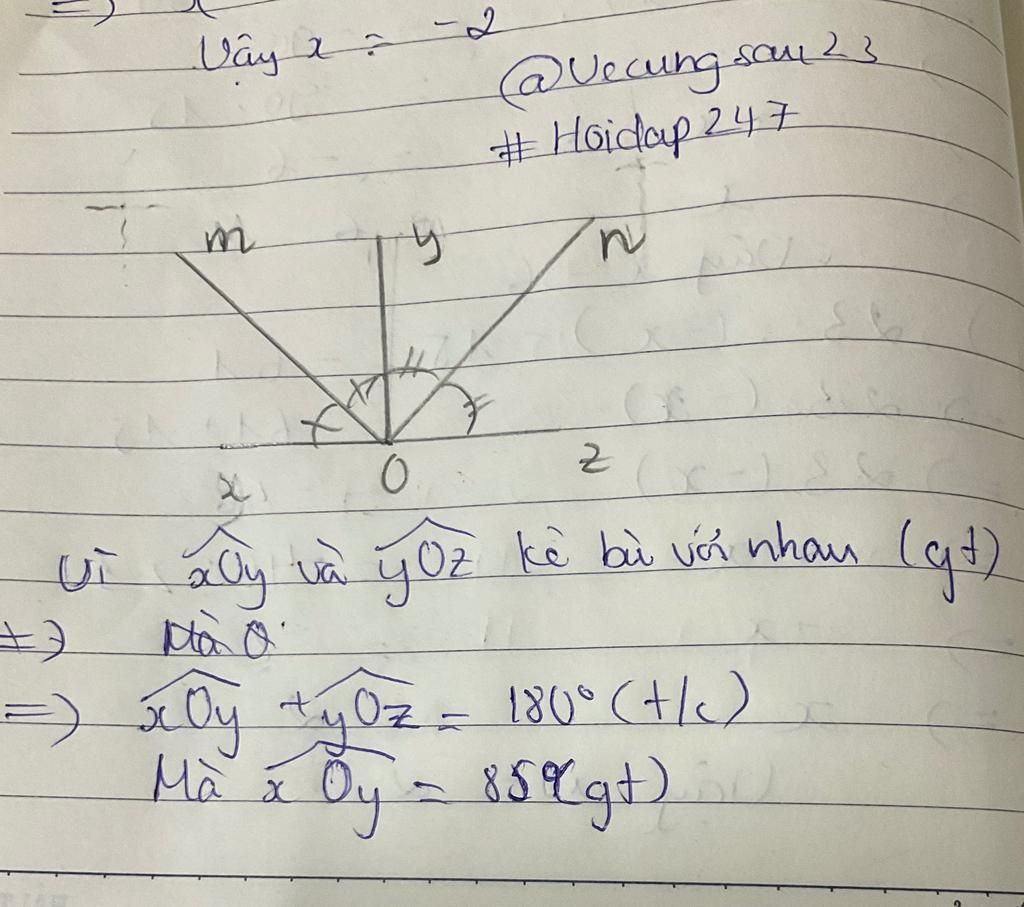 =>
Vậy x = -2
@Vecungsau23
# Hoidap 247
m y n
x O z
Vì xOy và yOz kề bù với nhau (gt)
=> Mà O
=> xOy + yOz = 180° (t/c)
Mà xOy = 85° (gt)